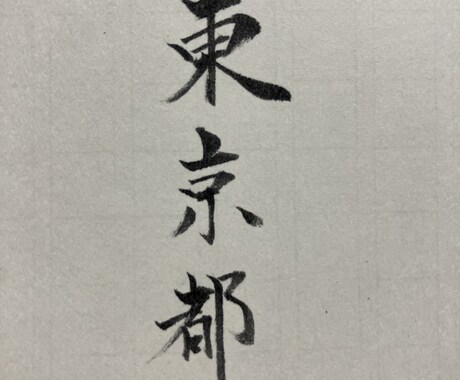 東京都